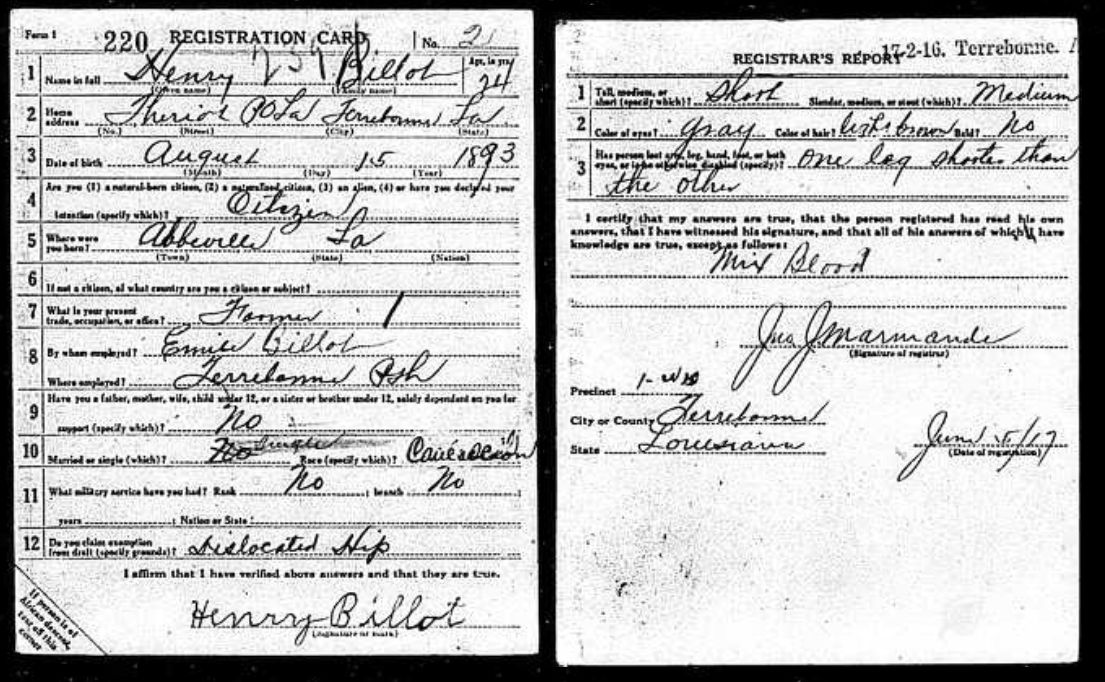 Form 1
220 REGISTRATION CARD No. 21
1 Name in full Henry Billot Age, in yrs 24
(Given name) (Family name)
2 Home address Theriot PO La Terrebonne La
(No.) (Street) (City) (State)
3 Date of birth August 15 1893
(Month) (Day) (Year)
4 Are you (1) a natural-born citizen, (2) a naturalized citizen, (3) an alien, (4) or have you declared your
intention (specify which)? Citizen
5 Where were you born? Abbeville La
(Town) (State) (Nation)
6 If not a citizen, of what country are you a citizen or subject?
7 What is your present trade, occupation, or office? Farmer
8 By whom employed? Emile Billot
Where employed? Terrebonne Psh
9 Have you a father, mother, wife, child under 12, or a sister or brother under 12, solely dependent on you for
support (specify which)? No
10 Married or single (which)? No Single Race (specify which)?
11 What military service have you had? Rank No ; branch No ;
years ; Nation or State
12 Do you claim exemption from draft (specify grounds)? Dislocated Hip
I affirm that I have verified above answers and that they are true.
Henry Billot
(Signature or mark)
If person is of
African descent,
tear off this
corner
17-2-16. Terrebonne.
REGISTRAR'S REPORT
1 Tall, medium, or short (specify which)? Short Slender, medium, or stout (which)? Medium
2 Color of eyes? Gray Color of hair? light brown Bald? No
3 Has person lost arm, leg, hand, foot, or both eyes, or is he otherwise disabled (specify)? one leg shorter than
the other
I certify that my answers are true, that the person registered has read his own
answers, that I have witnessed his signature, and that all of his answers of which I have
knowledge are true, except as follows:
Mix Blood
Jno J Marmande
(Signature of registrar)
Precinct 1-
City or County Terrebonne
State Louisiana
June 5/17
(Date of registration)